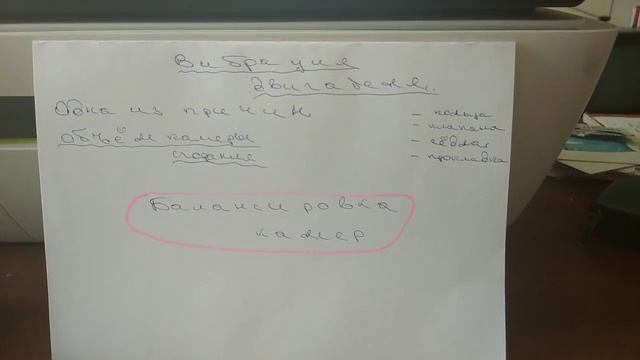 Вибрация
двигателя.
Одна из причин
Объём камеры
сгорание
- кольца
- клапана
- сёдла,
- прокладка
Балансировка
камер